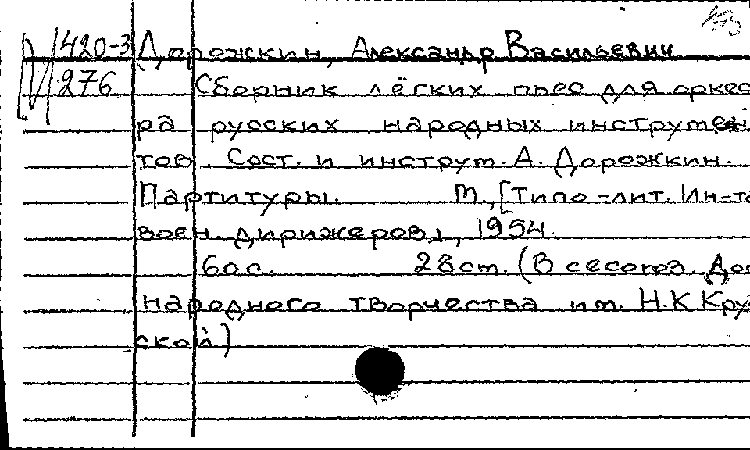 420-3 Дорожкин, Александр Васильевич
276 Сборник лёгких пьес для оркес
ра русских народных инструмен
тов. Сост. и инструт. А. Дорожкин.
Партитуры. М., [Типо-лит. Ин-та
воен. дирижеров], 1954.
60 с. 28 см. (Всесоюз. Дом
народного творчества им. Н. К Кру
ской)